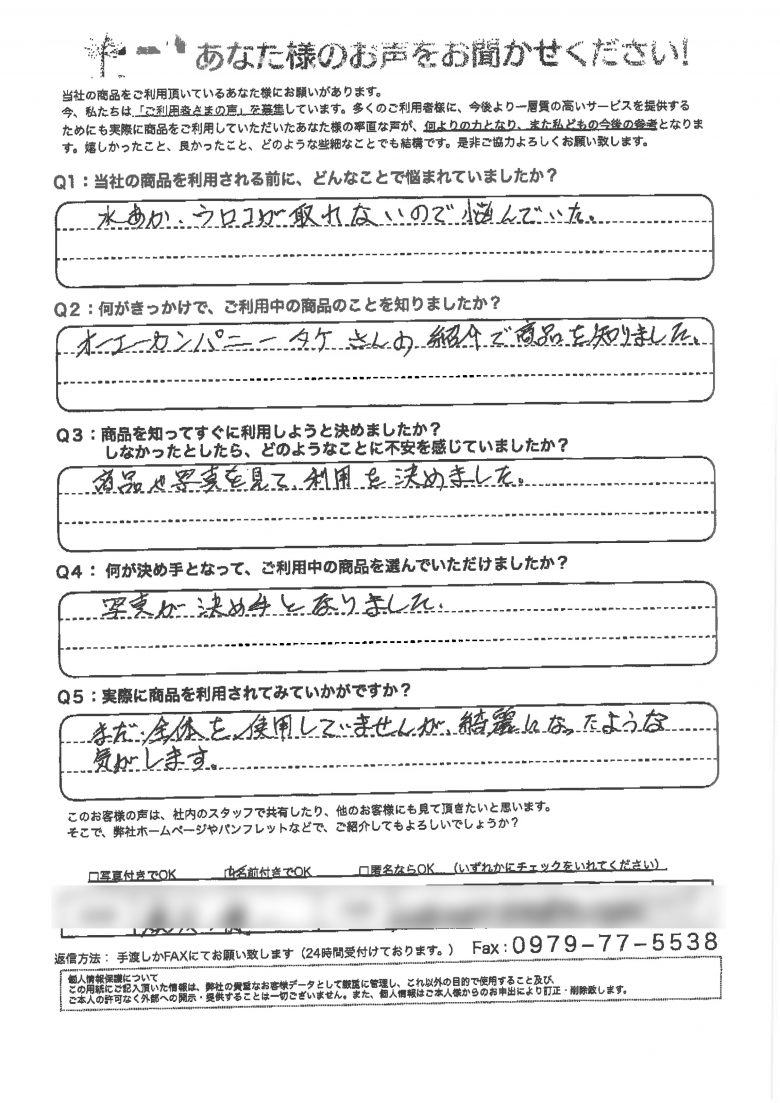 あなた様のお声をお聞かせください!
当社の商品をご利用頂いているあなた様にお願いがあります。
今、私たちは「ご利用者さまの声」を募集しています。多くのご利用者様に、今後より一層質の高いサービスを提供する
ためにも実際に商品をご利用していただいたあなた様の率直な声が、何よりの力となり、また私どもの今後の参考となりま
す。嬉しかったこと、良かったこと、どのような些細なことでも結構です。是非ご協力よろしくお願い致します。
Q1:当社の商品を利用される前に、どんなことで悩まれていましたか?
水あか、ウロコが取れないので悩んでいた。
Q2:何がきっかけで、ご利用中の商品のことを知りましたか?
オーエーカンパニー タケさんの紹介で商品を知りました。
Q3:商品を知ってすぐに利用しようと決めましたか?
しなかったとしたら、どのようなことに不安を感じていましたか?
商品や写真を見て、利用を決めました。
Q4:何が決め手となって、ご利用中の商品を選んでいただけましたか?
写真が決め手となりました。
Q5:実際に商品を利用されてみていかがですか?
まだ、全体を、使用していませんが、綺麗になったような
気がします。
このお客様の声は、社内のスタッフで共有したり、他のお客様にも見て頂きたいと思います。
そこで、弊社ホームページやパンフレットなどで、ご紹介してもよろしいでしょうか?
□写真付きでOK 名前付きでOK □匿名ならOK (いずれかにチェックをいれてください)
返信方法: 手渡しかFAXにてお願い致します(24時間受付けております。) Fax:0979-77-5538
個人情報保護について
この用紙にご記入頂いた情報は、弊社の貴重なお客様データとして厳重に管理し、これ以外の目的で使用すること及び、
ご本人の許可なく外部への開示・提供することは一切ございません。また、個人情報はご本人様からのお申出により訂正・削除致します。